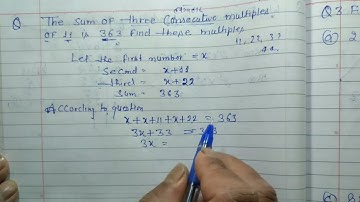 Q The sum of three Consecutive multiples
of 11 is 363 find these multiples
11, 22, 33
44
Let the first number = x
Second = x+11
third = x+22
Sum = 363
According to question
x + x+11 + x+22 = 363
3x + 33 =
3x =
Q3
Q 2